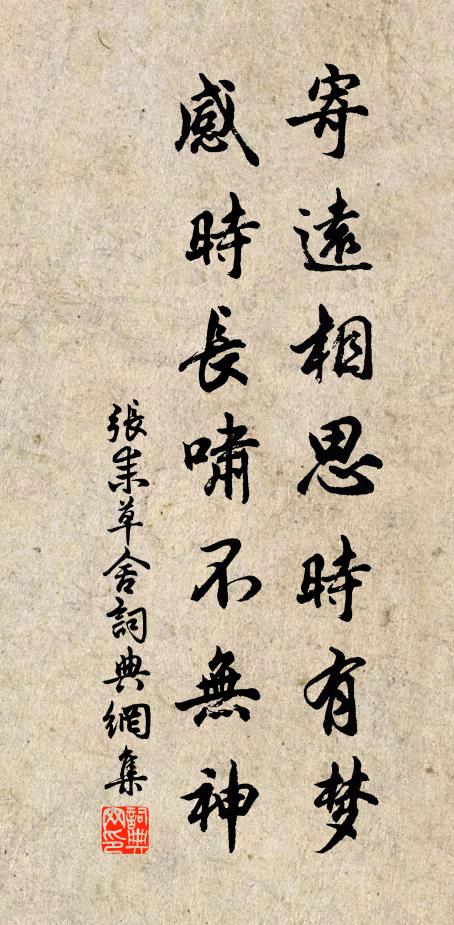 寄遠相思時有梦
感時長嘯不無神
張耒草舍詞典網集
詞典網印